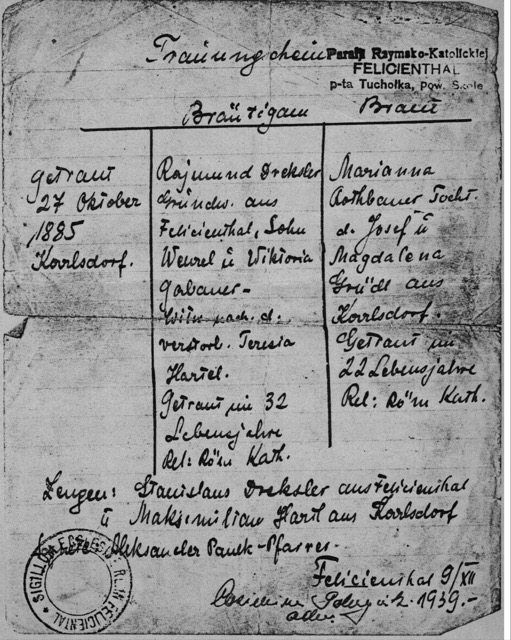 Trauungschein
Parafji Rzymsko-Katolickiej
FELICIENTHAL
p-ta Tuchołka, pow. Skole
Bräutigam
Braut
Getraut
27 Oktober
1885
Karlsdorf.
Rajmund Dreksler
Gründw. aus
Felicienthal, Sohn
Wenzel ü Wiktoria
Gabauer-
Witw nach. d.
verstorb. Teresia
Hartel.
Getraut im 32
Lebensjahre
Rel: Röm Kath.
Marianna
Rothbauer Tocht.
d. Josef ü
Magdalena
Gründl aus
Karlsdorf.
Getraut im
22 Lebensjahre
Rel: Röm Kath.
Zeugen: Stanislaus Dreksler aus Felicienthal
ü Maksimilian Hartl aus Karlsdorf
Aleksander Pauk-Pfarrer-
Felicienthal 9/XII
1939.-
adm.
SIGILLUM ECCLESIAE FELICIENTAL